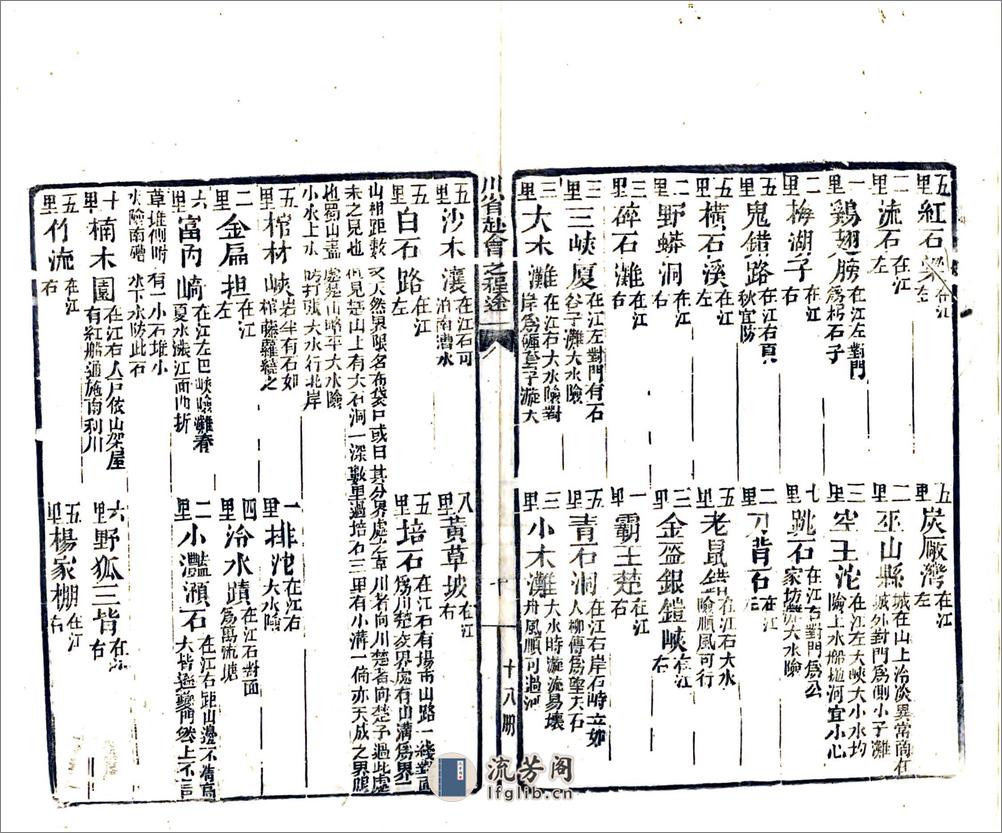 五里紅石梁在江左 五里炭厰灣在江左
二里流石在江左 二里巫山縣城在山上冷淡異常南在城外對門爲側小子灘
一里鷄翅膀在江左對門爲杇石子 三里空王沱在江左大峽大小水均險上水船河宜小心
二里梅湖子在江右 七里跳石在江右對門爲公家坊大水險
五里鬼錯路在江右頁秋宜防 二里刀背石在江
五里橫石溪在江左 五里老鼠錯在江右大水險順風可行
二里野蟒洞在江右 三里金盔銀鎧峽在江右
二里碎石灘在江右 一里霸王楚在江右
三里三峽厦在江左對門有石谷子灘大水險 五里青石洞在江右岸石峙立如人柳傳爲望夫石
三里大木灘在江右大水險對岸爲碾盤子漩大 三里小木灘大水時漩流易壊舟風順可過河
川省赴會之程途 十 十八册
五里沙木瀼在江右可泊南漕水 八里黃草坡在江右
五里白石路在江左 五里培石在江右有場市山路一綫對面爲川楚交界處有山溝爲界二
山相距數丈天然界限名布袋口或曰其分界處之草川者向川楚者向楚予過此處
未之見也但見楚山上有大石洞一深數里過培石三里有小溝一倘亦天成之界歟
也蜀山盡處楚山略平大水險
小水上水防打張大水行北岸
五里棺材峽岩半有石如棺藤蘿繞之 一里排沱在江右大水險
二里金扁担在江左 四里冷水蹟在江右對面爲萬流塘
六里富內崎在江左巴峽險灘春夏水漲江面曲折 二里小灩澦石在江右距山邊不甚高大皆過夔門然上不言
草堆側附有一小石堆小
水險南漕水下水防此石
十里楠木園在江右人戶依山架屋有紅船通施南利川 六里野狐三背在江右
五里竹流在江右 五里楊家棚在江右
流芳阁
lfglib.cn